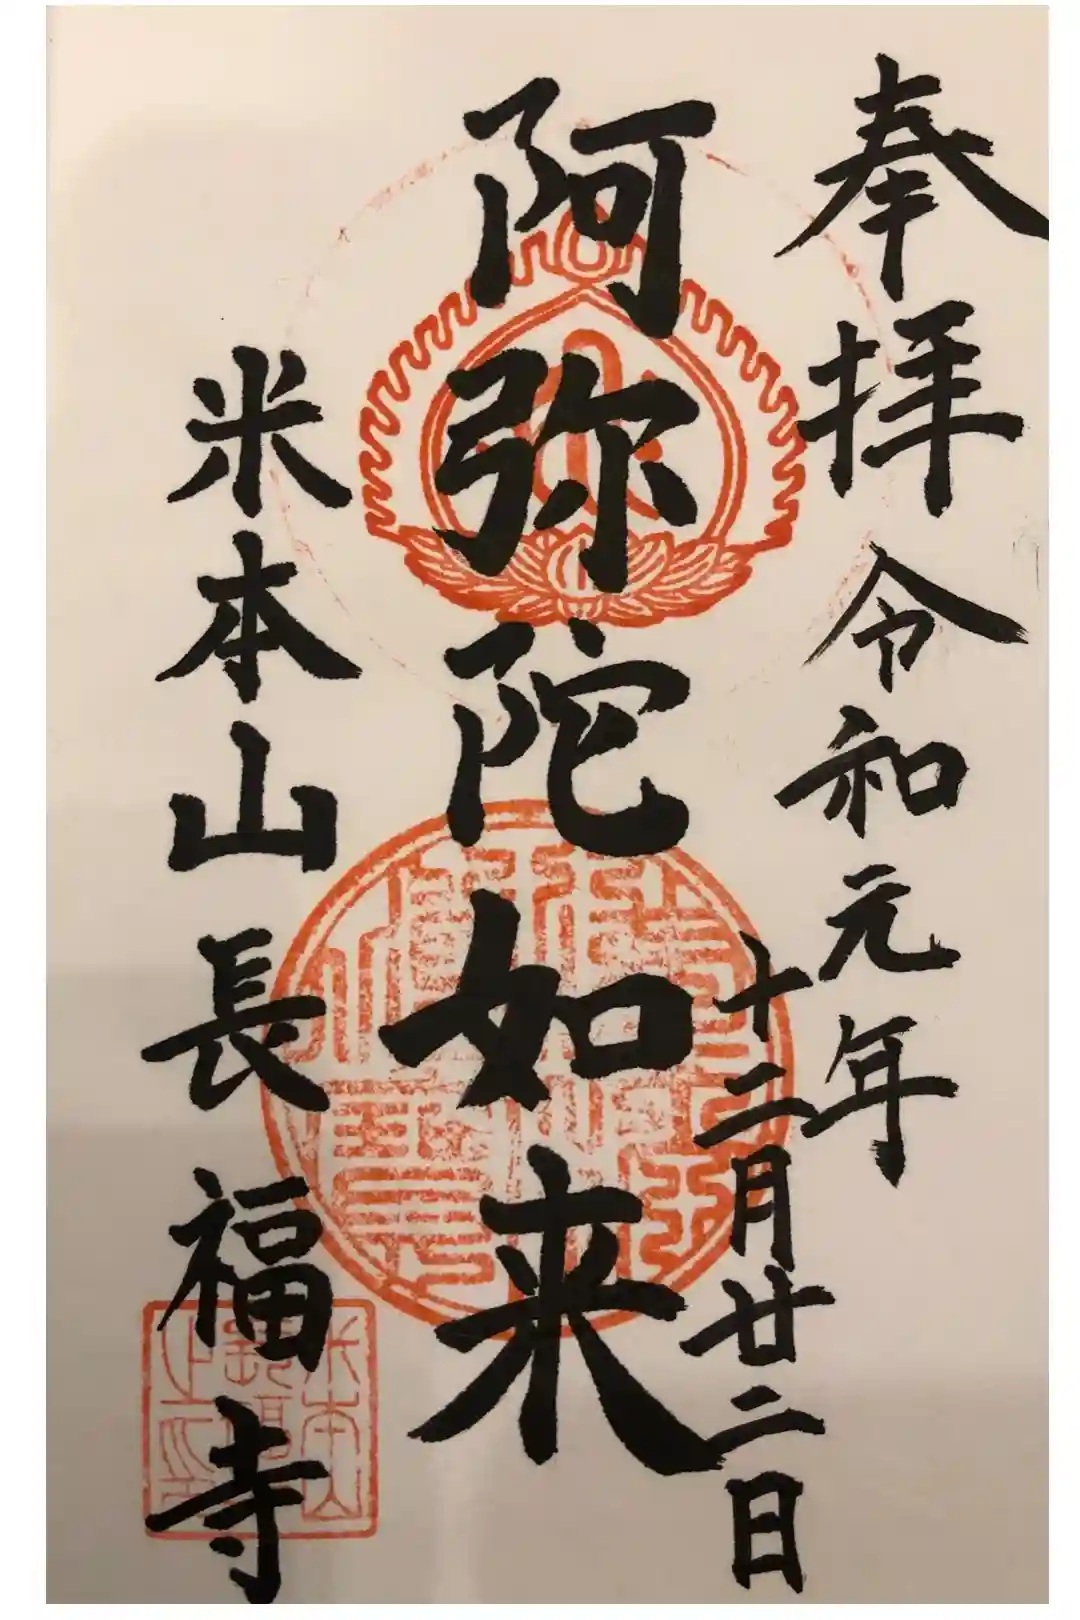 奉拝
令和元年
十二月廿二日
阿弥陀如来
米本山長福寺